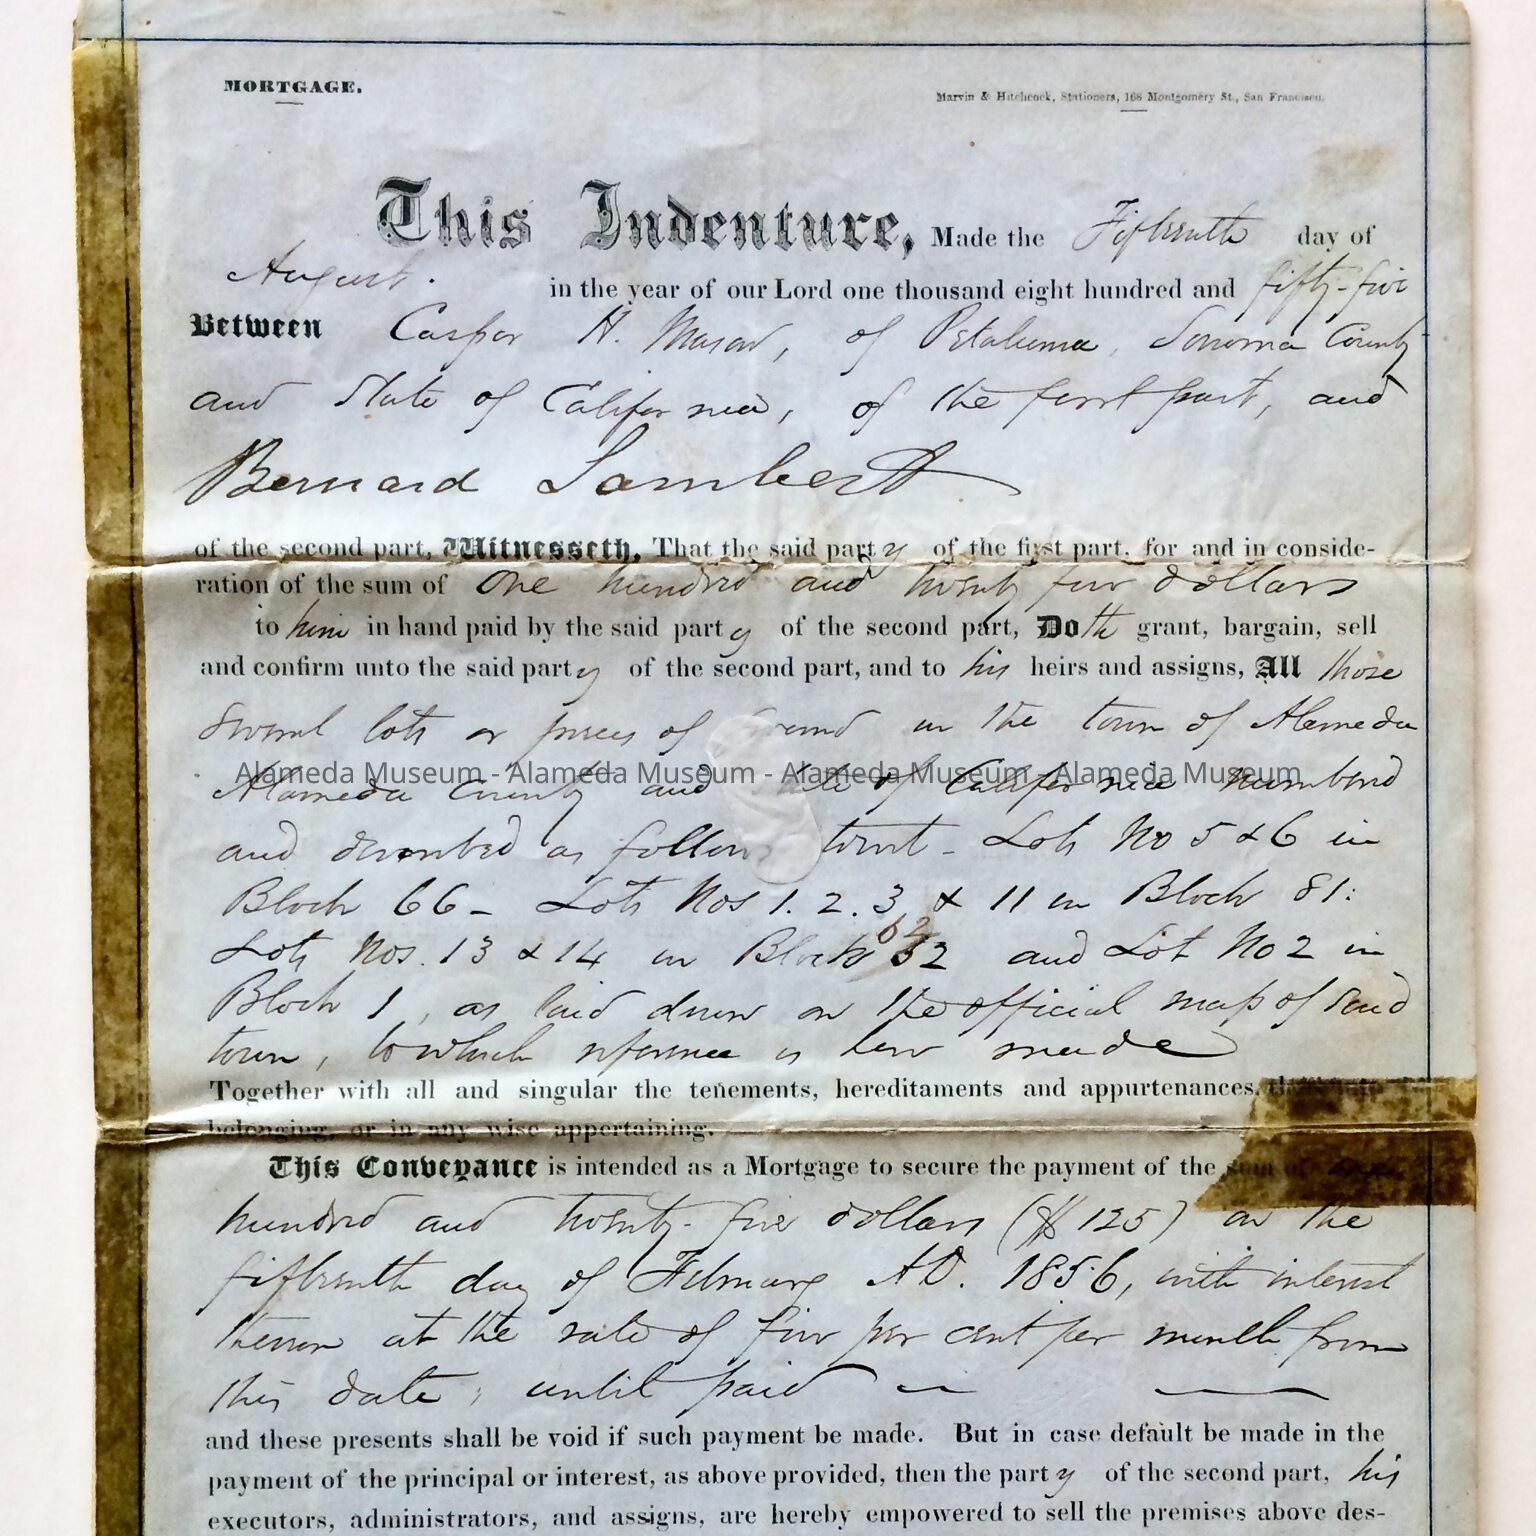 MORTGAGE.
Marvin & Hitchcock, Stationers, 168 Montgomery St., San Francisco.
This Indenture, Made the Fifteenth day of
August. in the year of our Lord one thousand eight hundred and fifty-five
Between Casper H. Mason, of Petaluma, Sonoma County
and State of California, of the first part, and
Bernard Lambert
of the second part, Witnesseth, That the said party of the first part, for and in conside-
ration of the sum of One hundred and twenty five dollars
to him in hand paid by the said party of the second part, Doth grant, bargain, sell
and confirm unto the said party of the second part, and to his heirs and assigns, All those
several lots or pieces of ground in the town of Alameda
Alameda Museum - Alameda Museum - Alameda Museum - Alameda Museum
Alameda County and State of California numbered
and described as follows towit - Lots No 5 & 6 in
Block 66 - Lots Nos 1. 2. 3 & 11 in Block 81:
Lots Nos. 13 & 14 in Block 62 and Lot No 2 in
Block 1, as laid down on the official map of said
town, to which reference is here made
Together with all and singular the tenements, hereditaments and appurtenances, thereunto
belonging, or in any wise appertaining.
This Conveyance is intended as a Mortgage to secure the payment of the sum of
hundred and twenty-five dollars ($125) on the
fifteenth day of February A.D. 1856, with interest
thereon at the rate of five per cent per month from
this date, until paid
and these presents shall be void if such payment be made. But in case default be made in the
payment of the principal or interest, as above provided, then the party of the second part, his
executors, administrators, and assigns, are hereby empowered to sell the premises above des-